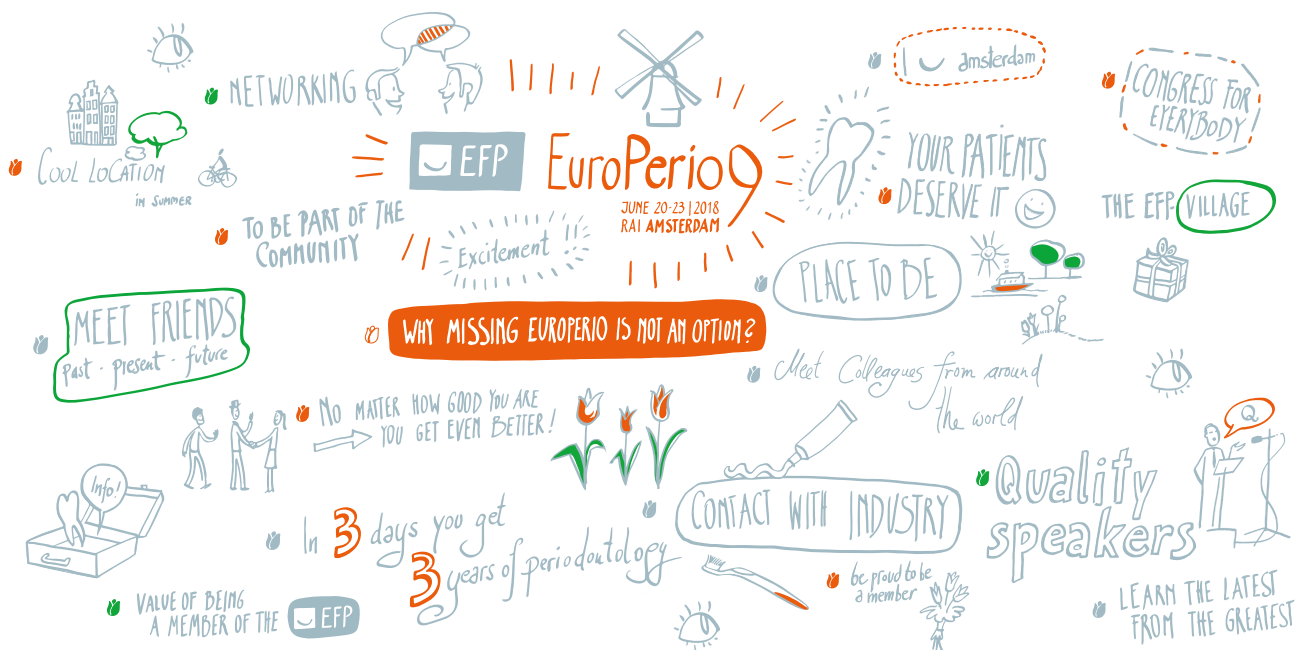 NETWORKING
COOL LOCATION
IN SUMMER
TO BE PART OF THE
COMMUNITY
EFP
EuroPerio9
JUNE 20-23 | 2018
RAI AMSTERDAM
Excitement !!
I amsterdam
CONGRESS FOR
EVERYBODY
YOUR PATIENTS
DESERVE IT
THE EFP-VILLAGE
PLACE TO BE
MEET FRIENDS
past - present - future
WHY MISSING EUROPERIO IS NOT AN OPTION?
Meet Colleagues from around
the world
NO MATTER HOW GOOD YOU ARE
YOU GET EVEN BETTER!
Info!
In 3 days you get
3 years of periodontology
CONTACT WITH INDUSTRY
Q
Quality
speakers
VALUE OF BEING
A MEMBER OF THE EFP
be proud to be
a member
LEARN THE LATEST
FROM THE GREATEST